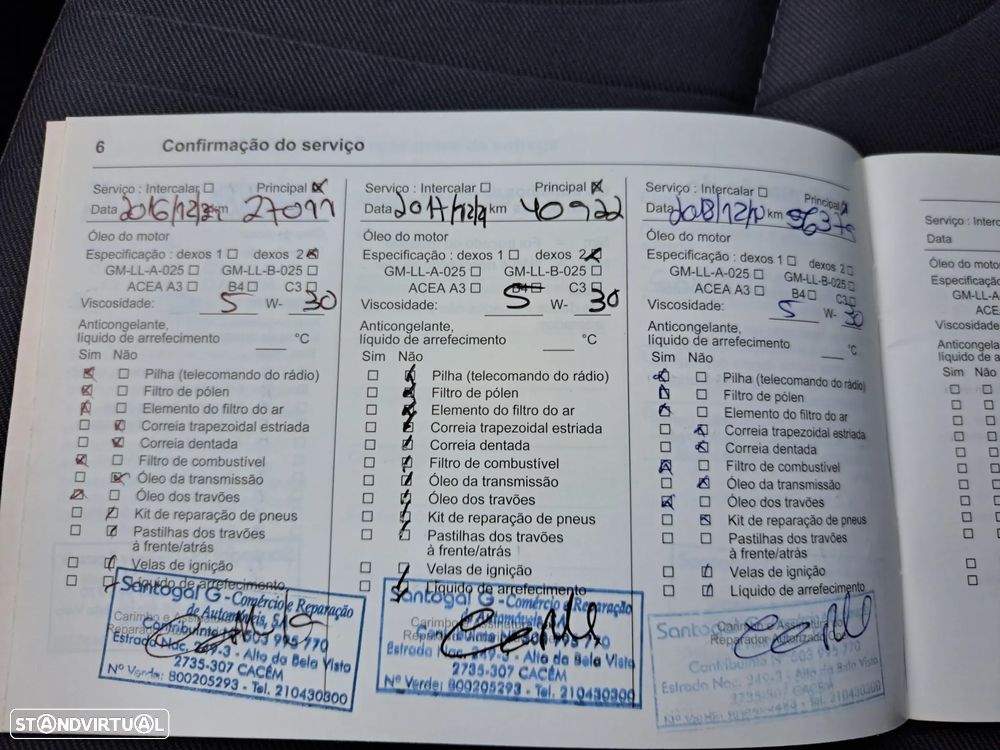 6 Confirmação do serviço
Serviço : Intercalar Principal
Data 2016/12/ km 27097
Óleo do motor
Especificação : dexos 1 dexos 2
GM-LL-A-025 GM-LL-B-025
ACEA A3 B4 C3
Viscosidade: 5 W- 30
Anticongelante,
líquido de arrefecimento °C
Sim Não
Pilha (telecomando do rádio)
Filtro de pólen
Elemento do filtro do ar
Correia trapezoidal estriada
Correia dentada
Filtro de combustível
Óleo da transmissão
Óleo dos travões
Kit de reparação de pneus
Pastilhas dos travões
à frente/atrás
Velas de ignição
Líquido de arrefecimento
Santogal G - Comércio e Reparação
de Automóveis, S.A.
Contribuinte Nº 503 995 770
Estrada Nac. 249-3 - Alto da Bela Vista
2735-307 CACÉM
Nº Verde: 800205293 - Tel. 210430300
Serviço : Intercalar Principal
Data 2017/12/ km 40922
Óleo do motor
Especificação : dexos 1 dexos 2
GM-LL-A-025 GM-LL-B-025
ACEA A3 B4 C3
Viscosidade: 5 W- 30
Anticongelante,
líquido de arrefecimento °C
Sim Não
Pilha (telecomando do rádio)
Filtro de pólen
Elemento do filtro do ar
Correia trapezoidal estriada
Correia dentada
Filtro de combustível
Óleo da transmissão
Óleo dos travões
Kit de reparação de pneus
Pastilhas dos travões
à frente/atrás
Velas de ignição
Líquido de arrefecimento
Santogal G - Comércio e Reparação
Estrada Nac. 249-3 - Alto da Bela Vista
2735-307 CACÉM
Nº Verde: 800205293 - Tel. 210430300
Serviço : Intercalar Principal
Data 2018/12/ km
Óleo do motor
Especificação : dexos 1 dexos 2
GM-LL-A-025 GM-LL-B-025
ACEA A3 B4 C3
Viscosidade: 5 W- 30
Anticongelante,
líquido de arrefecimento °C
Sim Não
Pilha (telecomando do rádio)
Filtro de pólen
Elemento do filtro do ar
Correia trapezoidal estriada
Correia dentada
Filtro de combustível
Óleo da transmissão
Óleo dos travões
Kit de reparação de pneus
Pastilhas dos travões
à frente/atrás
Velas de ignição
Líquido de arrefecimento
Carimbo e Assinatura do
Reparador Autorizado
Contribuinte Nº 503 995 770
Estrada Nac. 249-3 - Alto da Bela Vista
Serviço : Interc
Data
Óleo do moto
Especificaçã
GM-LL-A
ACE
Viscosidade
Anticongela
líquido de a
Sim Não
STANDVIRTUAL